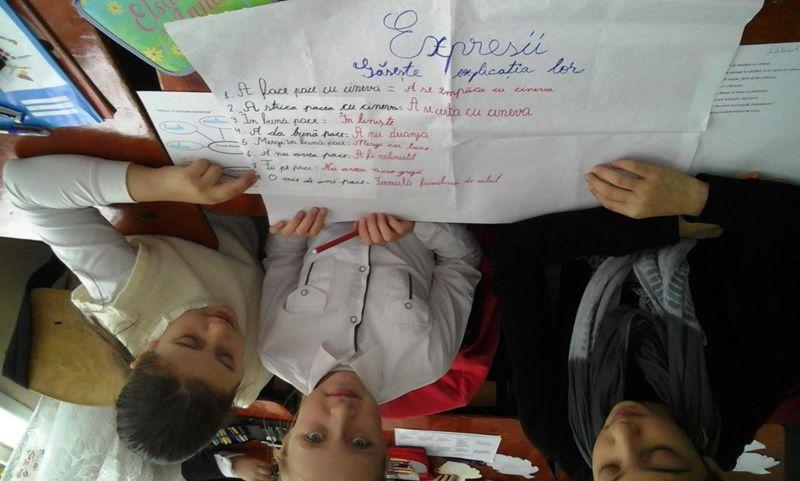 Expresii
Găsește explicația lor
1. A face pace cu cineva = A se împăca cu cineva
2. A strica pacea cu cineva = A se certa cu cineva
3. În bună pace = În liniște
4. A da bună pace = A nu deranja
5. Mergi în bună pace = Mergi cu bine
6. A nu avea pace = A fi neliniștit
7. Fii pe pace = Nu avea nicio grijă
8. O mie de ani pace = Formula familiară de salut